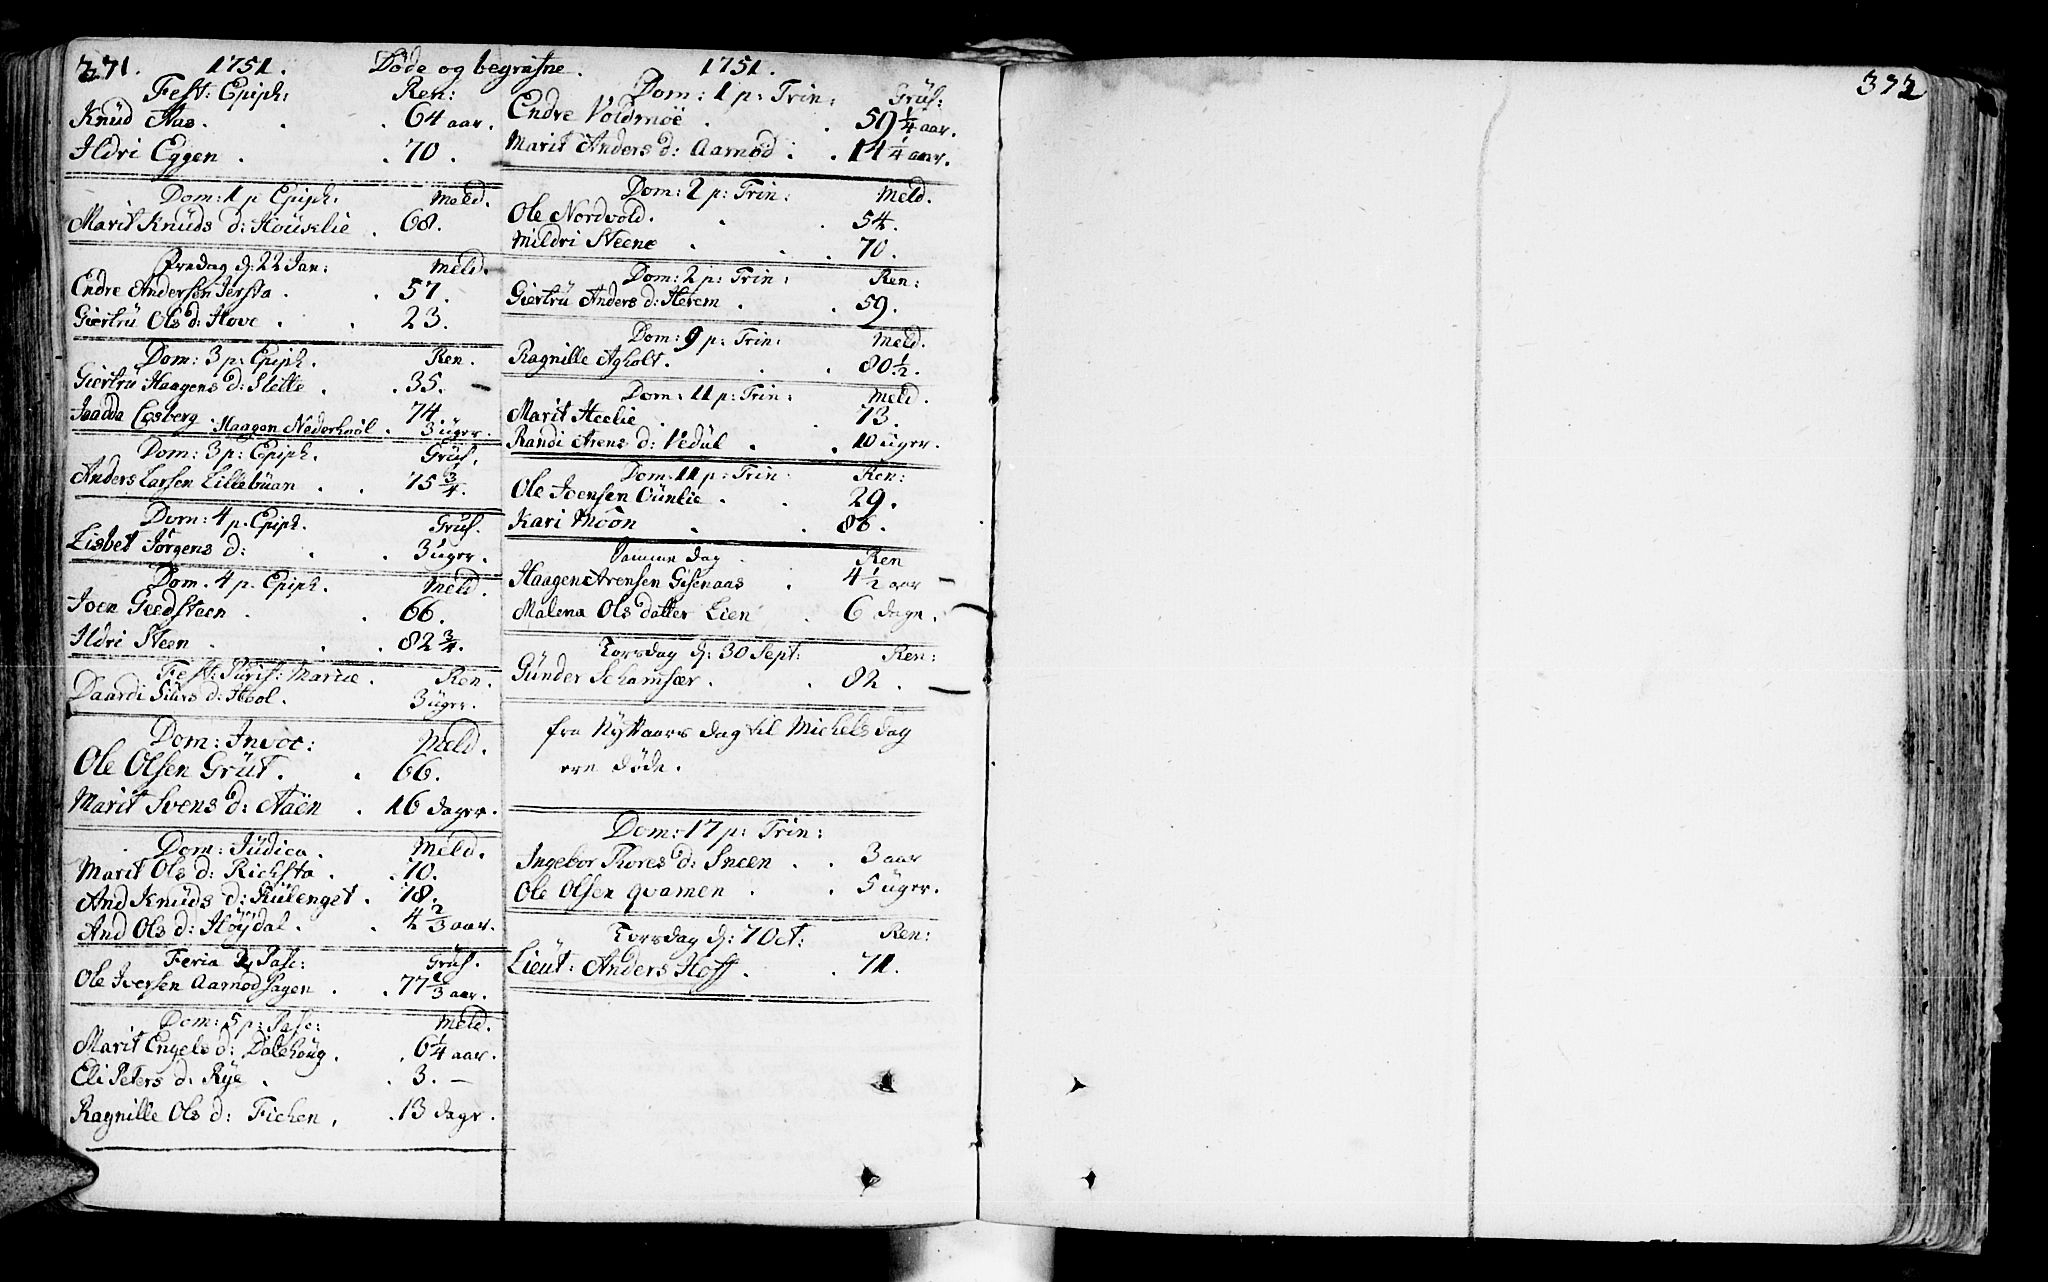 371. 1751. Døde og begrafne. 1751.
Fest: Epiph: Ren:
Knüd Aas. 64 aar.
Ildri Eggen. 70.
Dom: 1 p Epiph. Meld.
Marit Knüds d: Houslie. 68.
Fredag d: 22 Jan: Meld.
Endre Andersen Jersta. 57.
Giertrü Ols d: Hove. 23.
Dom: 3 p: Epiph. Ren.
Giertrü Haagens d: Stelle. 35.
Losberg 74.
Haagen Nederhoöl. 3 üger.
Dom: 3 p: Epiph. Grüf.
Anders Larsen Lillebüan. 75 3/4.
Dom: 4 p. Epiph. Grüf.
Lisbet Jörgens d: 3 üger.
Dom. 4 p. Epiph. Meld.
Joen Geedsteen. 66.
Ildri Steen. 82 3/4.
Fest: Purif: Mariæ. Ren.
Daardi Siürs d: Hool. 3 üger.
Dom: Invoc: Meld.
Ole Olsen Grüt. 66.
Marit Svens d: Aaen. 16 dager.
Dom: Jüdica. Meld.
Marit Ols d: Richsta. 70.
And Knüds d: Külenget. 18.
And Ols d: Höydal. 4 2/3 aar.
Feria 2 Pasc: Grüf.
Ole Iversen Aarnodhagen. 77 1/3 aar.
Dom: 5 p: Pasc: Meld.
Marit Engels d: Dalehoüg. 6 1/4 aar.
Eli Peters d: Rye. 3. —
Ragnille Ols d: Fichen. 13 dage.
Dom: 1 p: Trin: Grüf:
Endre Voldmöe. 59 1/4 aar.
Marit Anders d: Aarnod. 14 1/4 aar.
Dom: 2 p: Trin: Meld.
Ole Nordvold. 54.
Mildri Steene. 70.
Dom: 2 p: Trin: Ren:
Giertrü Anders d: Herem. 59.
Dom: 9 p: Trin: Meld.
Ragnille Agholt. 80 1/2.
Dom: 11 p: Trin: Meld.
Marit Heelie. 73.
Randi Arens d: Vedül. 10 uger.
Dom: 11 p: Trin Ren:
Ole Joensen Oünlie. 29.
Kari Möon 86.
Samme dag. Ren
Haagen Arensen Gisenaas. 4 1/2 aar
Malena Ols datter Lien 6 dage.
Torsdag d: 30 Sept: Ren:
Günder Schamfær. 82.
fra Nyttaars dag til Michels dag
ere døde.
Dom: 17 p: Trin:
Ingebor Thores d: Sneen. 3 aar
Ole Olsen qvamen. 5 üger.
Torsdag d: 7 Oct: Ren:
Lieut: Anders Hoff. 71.
372